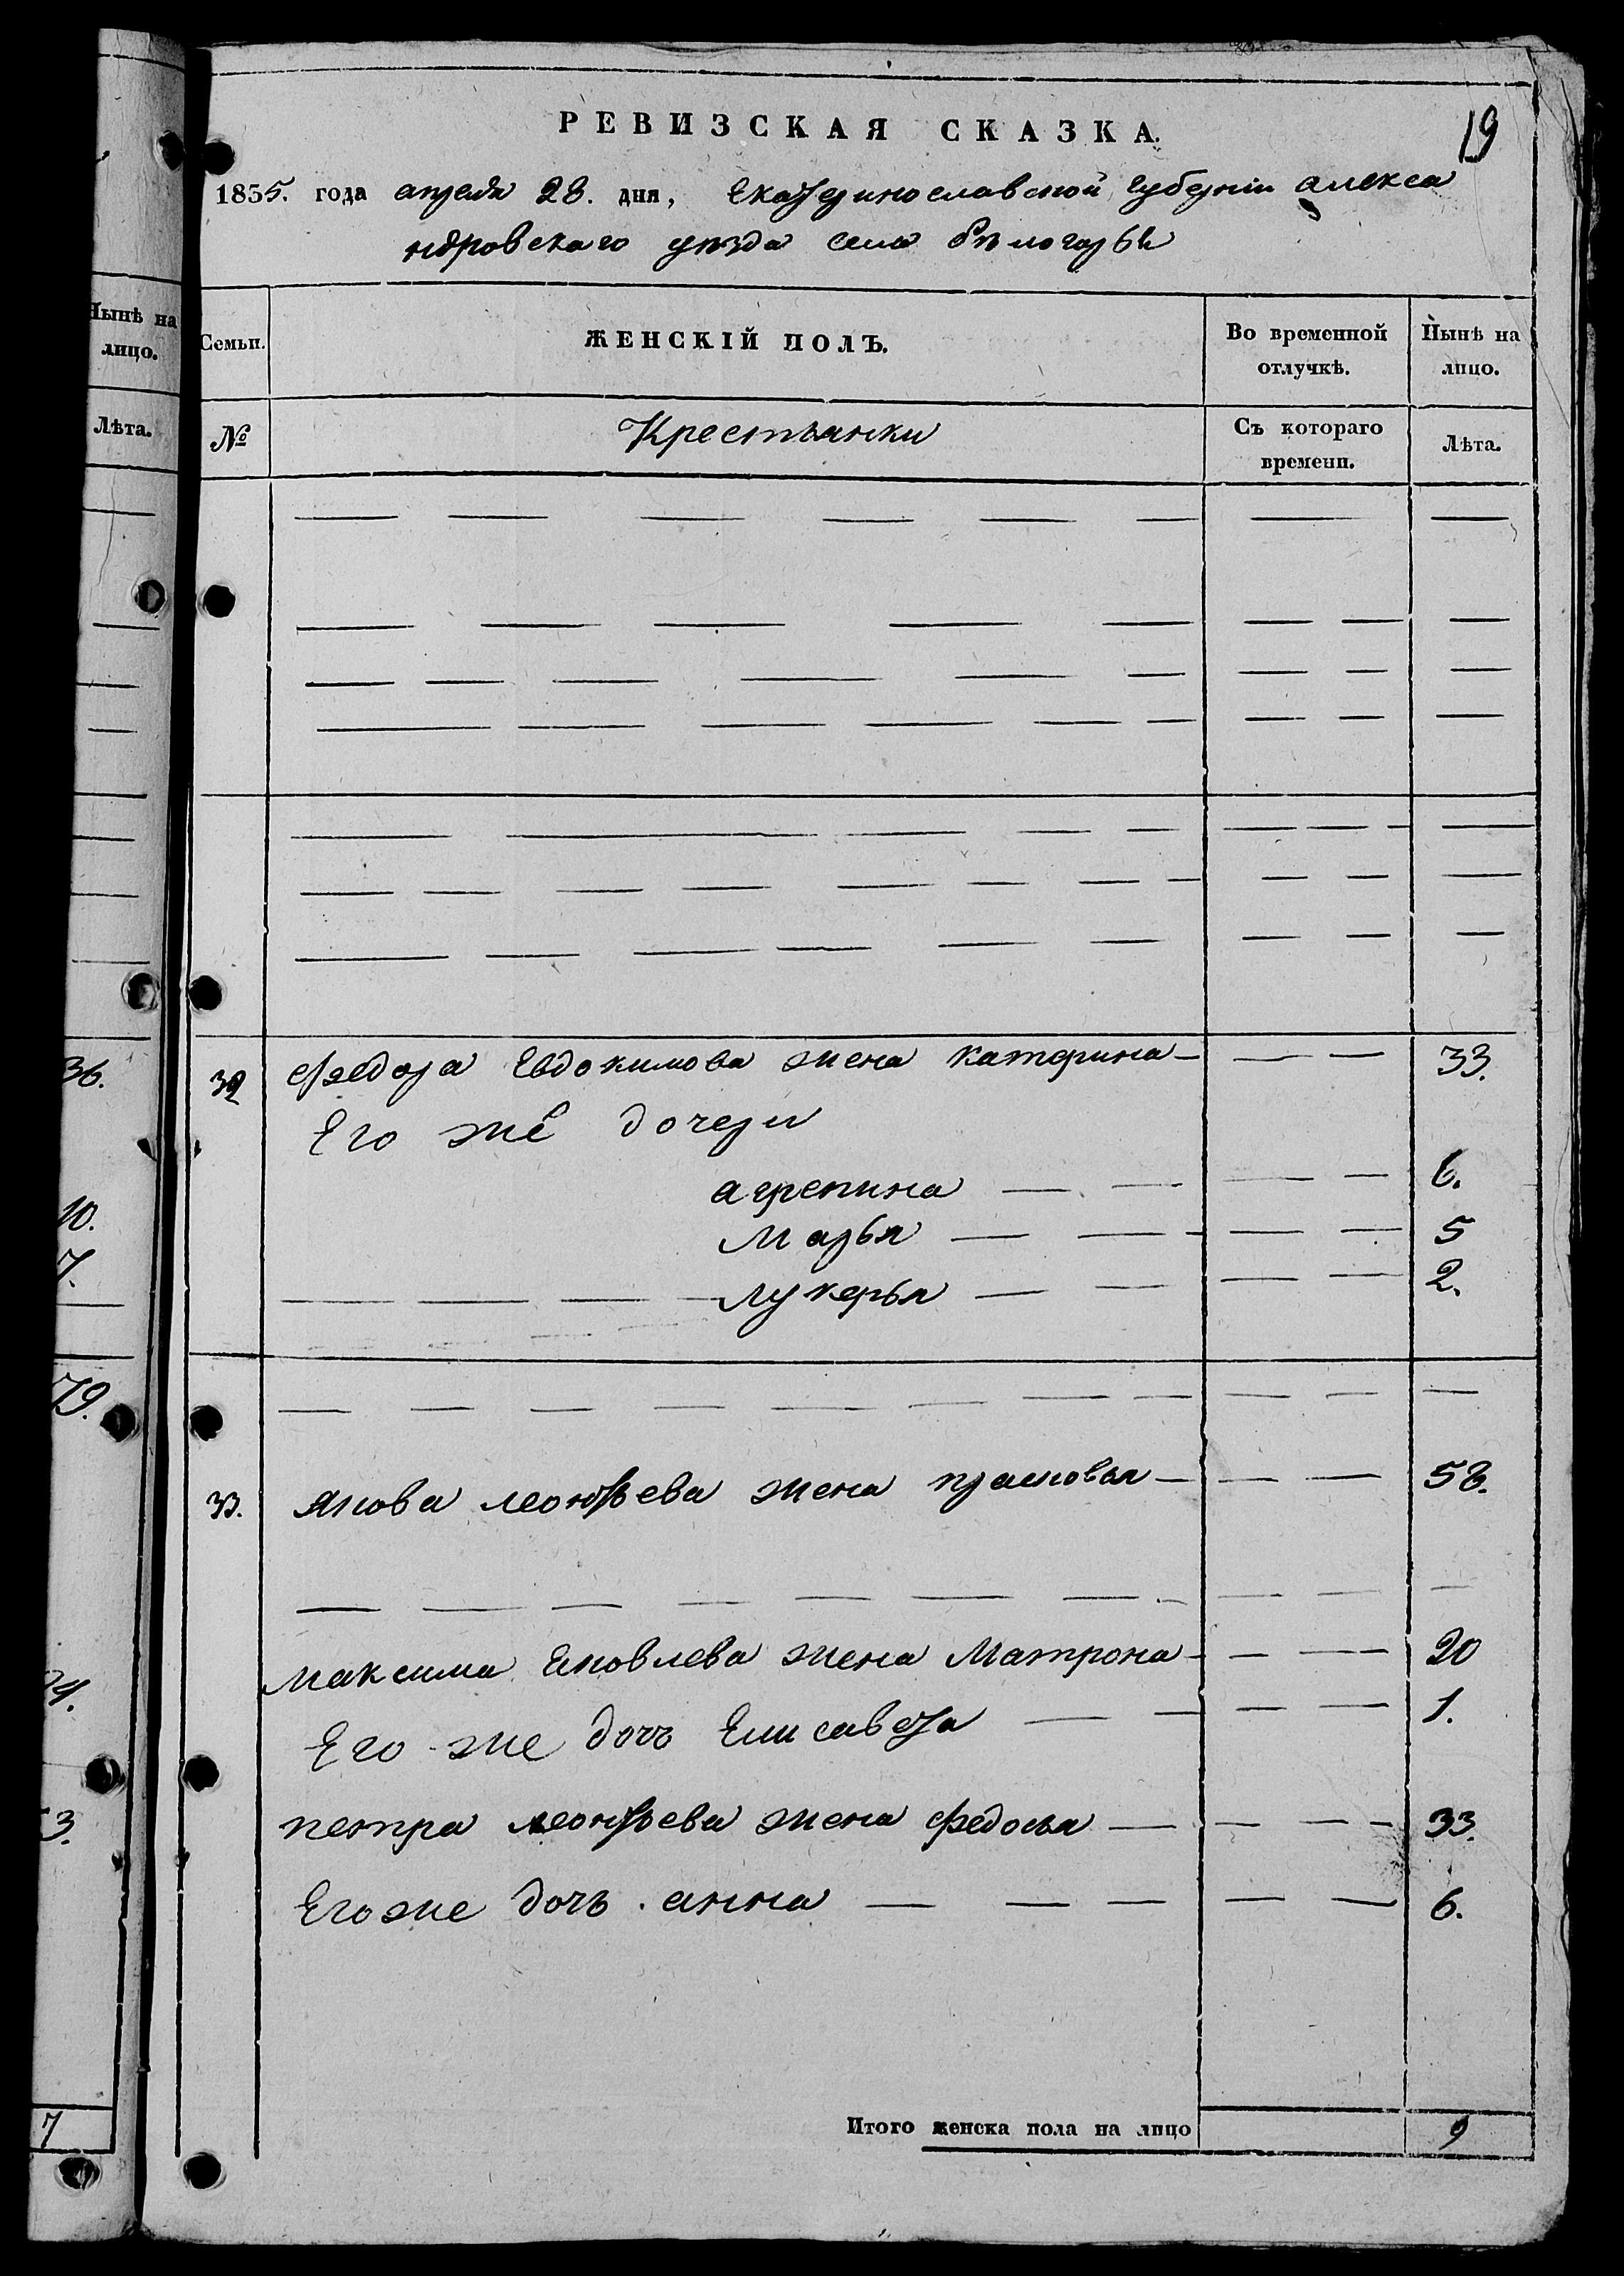 19
РЕВИЗСКАЯ СКАЗКА.
1835. года апреля 28. дня, Екатеринославской губернiи алекса
ндровскаго уѣзда села бѣлогорья
Нынѣ на лицо.
Лѣта.
Семьи.
ЖЕНСКIЙ ПОЛЪ.
Во временной отлучкѣ.
Нынѣ на лицо.
№
Крестьянки
Съ котораго времени.
Лѣта.
36.
32 Федора Евдокимова жена катерина 33.
Его же дочери
10.
агрепина 6.
7.
Марья 5
Лукерья 2.
79.
33. якова леонтьева жена прасковья 58.
Максима Яковлева жена Матрона 20
Его же дочь Елисавета 1.
петра леонтьева жена Федосья 33.
Его же дочь анна 6.
7
Итого женска пола на лицо 9